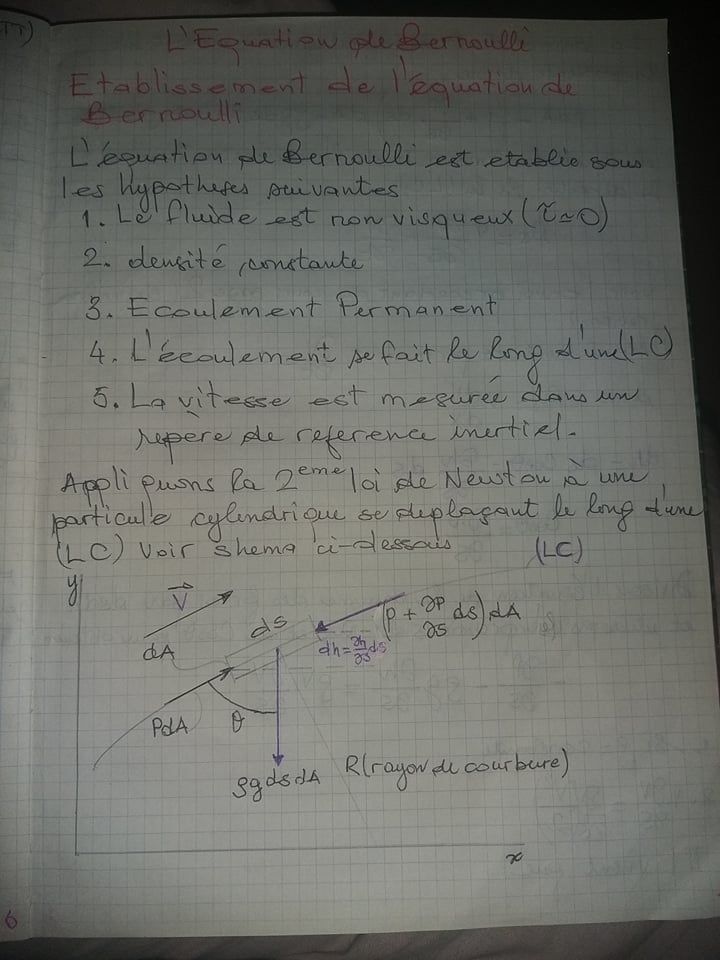 TT)
L'Equation de Bernoulli
Etablissement de l'équation de
Bernoulli
L'équation de Bernoulli est etablie sous
les hypotheses suivantes
1. Le fluide est non visqueux (τ≃0)
2. densité constante
3. Ecoulement Permanent
4. L'écoulement se fait le long d'une (LC)
5. La vitesse est mesurée dans un
repère de reference inertiel.
Appliquons la 2eme loi de Newton à une
particule cylindrique se deplaçant le long d'une
(LC) Voir shema ci-dessous
(LC)
y
V
ds
(p + ∂P/∂s ds) dA
dh = ∂h/∂s ds
dA
PdA
θ
ρg ds dA
R (rayon de courbure)
x
6